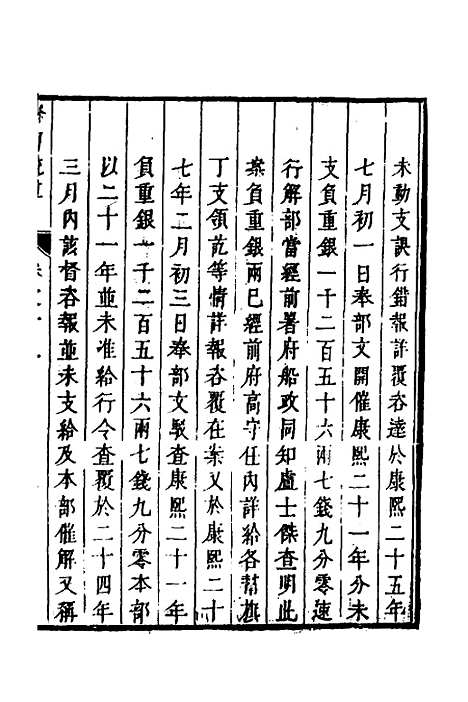 未動支誤行錯報詳覆咨達於康熙二十五年
七月初一日奉部文開催康熙二十一年分未
支負重銀一千二百五十六兩七錢九分零速
行解部當經前署府船政同知盧士傑查明此
案負重銀兩已經前府高守任內詳給各幫旗
丁支領訖等情詳報咨覆在案又於康熙二十
七年二月初三日奉部文駁查康熙二十一年
負重銀一千二百五十六兩七錢九分零本部
以二十一年並未准給行令查覆於二十四年
三月內該督咨報並未支給及本部催解又稱